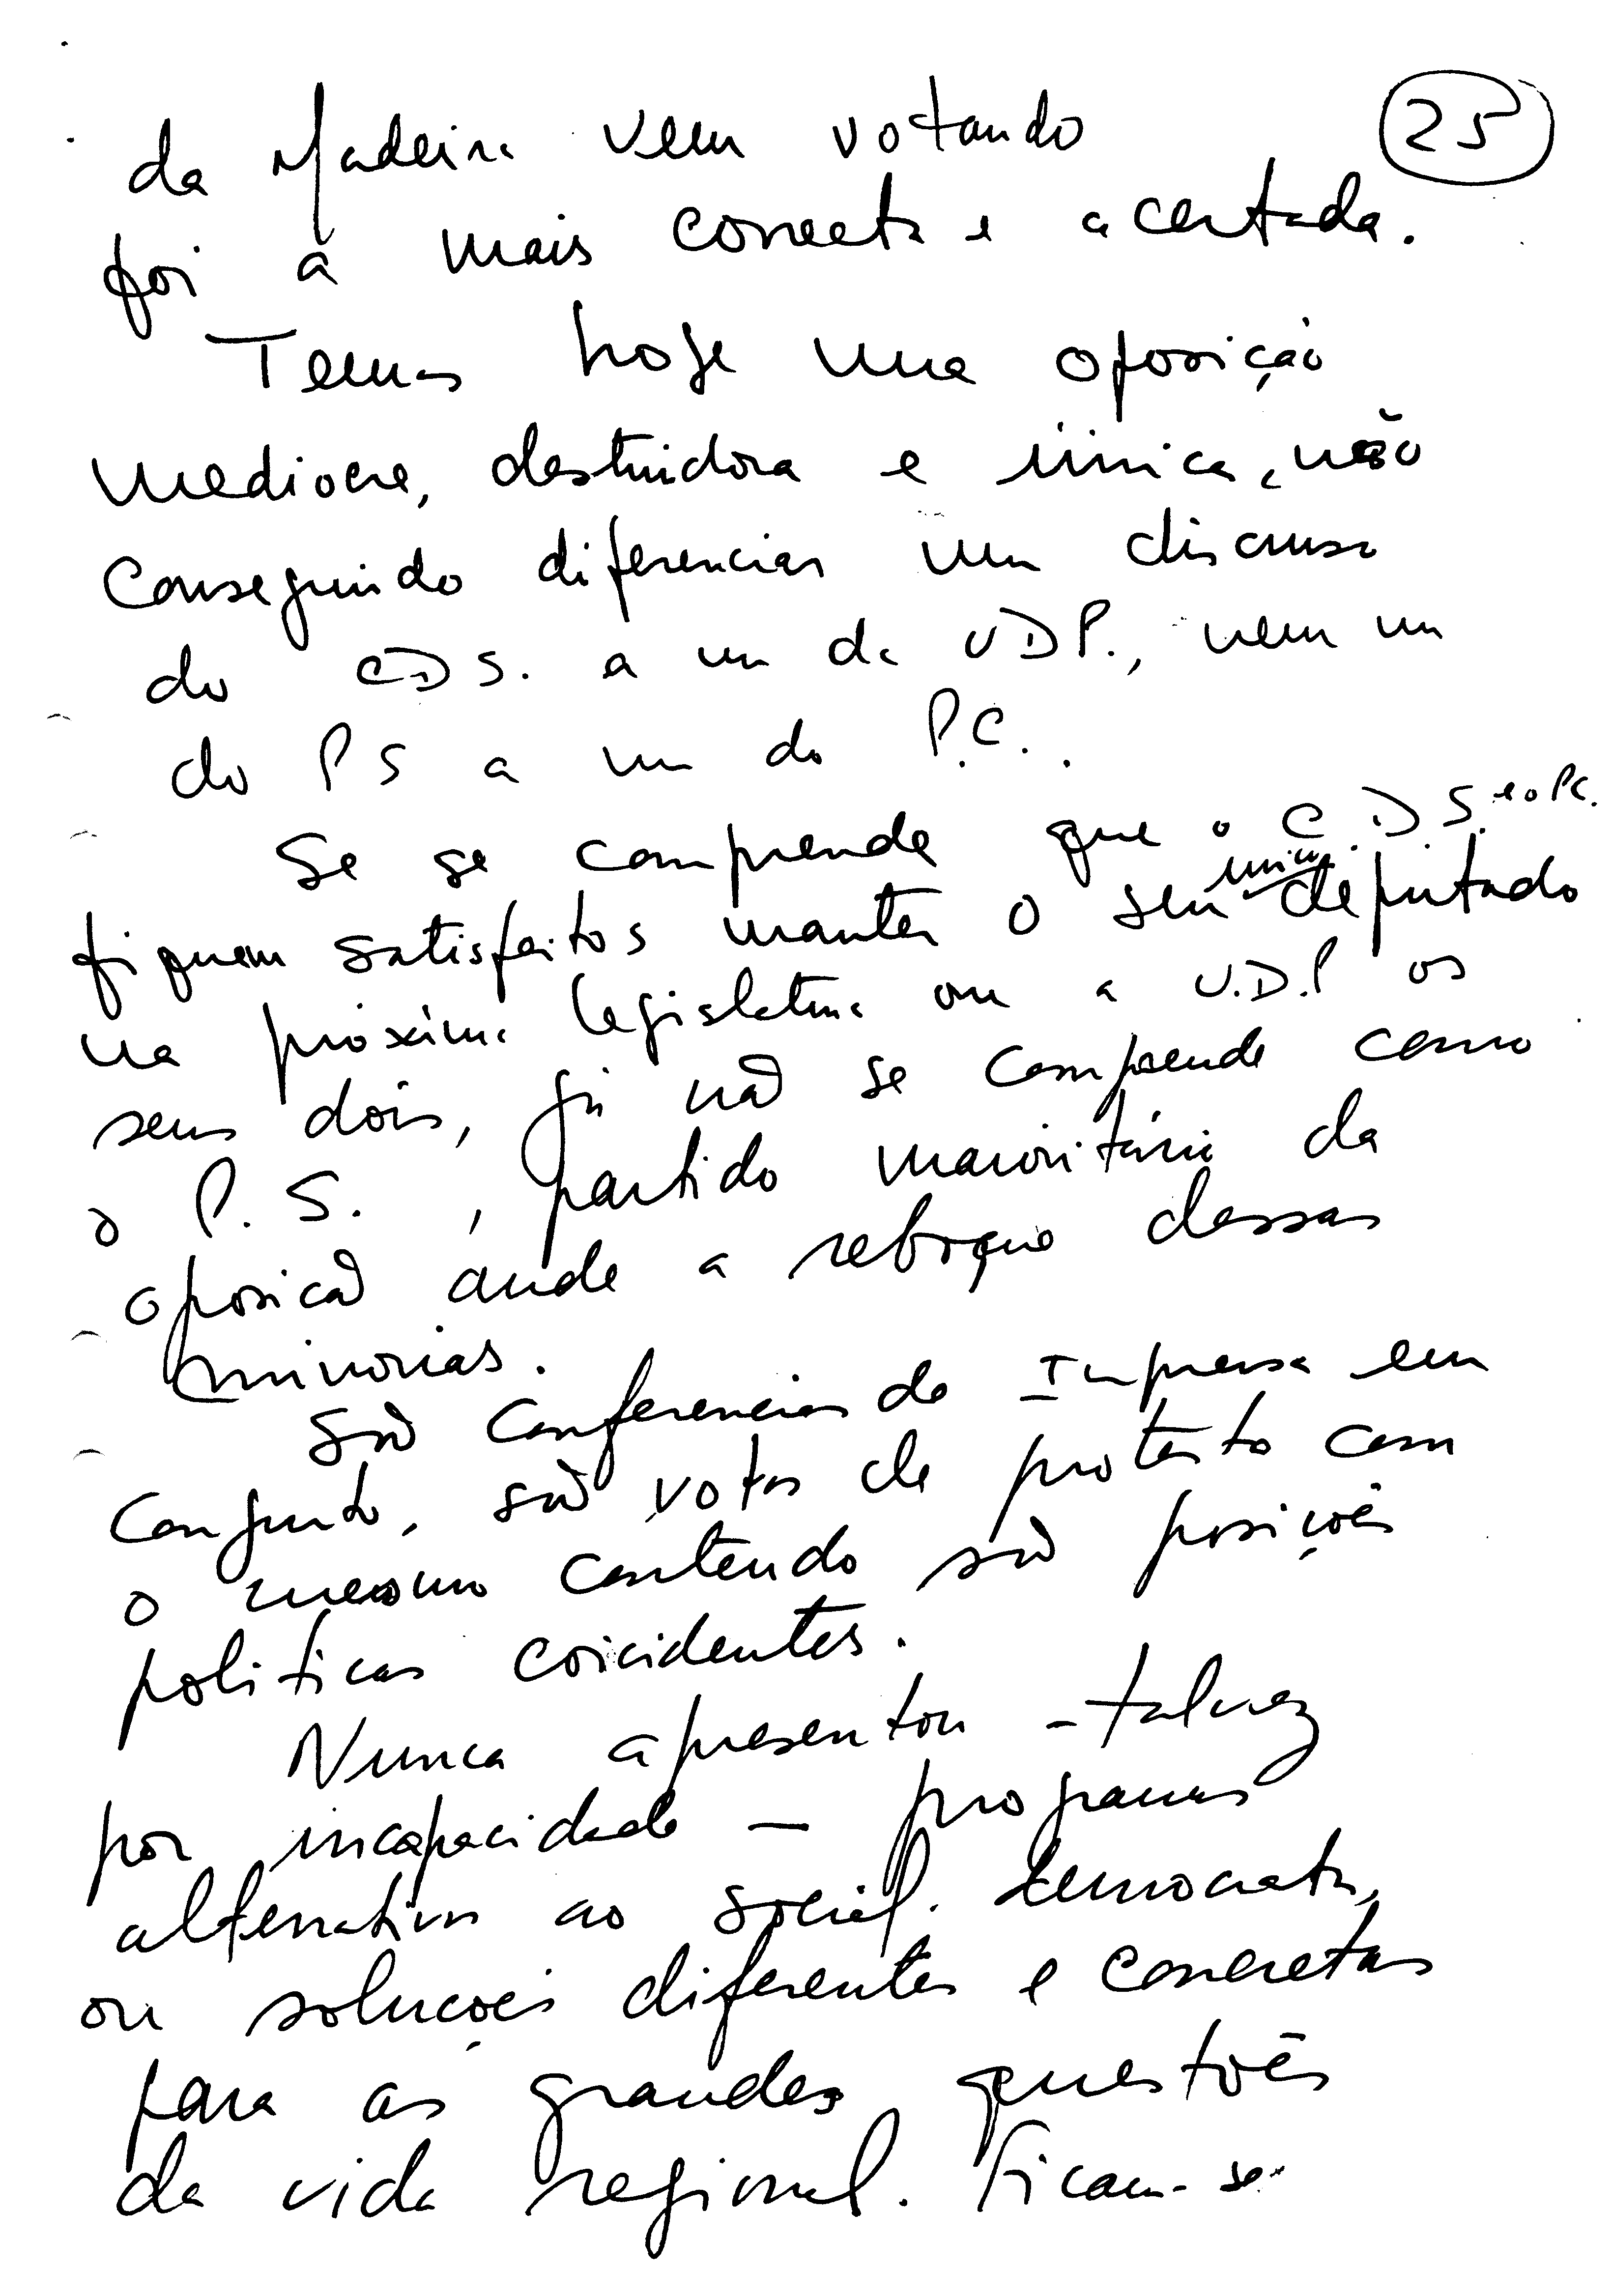 25
da Madeira vem votando
foi a mais correcta e acertada.
Temos hoje uma oposição
mediocre, destruidora e única, não
conseguindo diferenciar um discurso
do CDS. a um da UDP., nem um
do PS a um do P.C..
Se se comprende que o C.D.S. e o PC.
fiquem satisfeitos manter o seu único deputado
na próxima legislatura ou a U.D.P os
seus dois, já não se comprende como
o P.S., partido maioritário da
oposição ande a reboque dessas
minorias.
São conferencias de Imprensa em
conjunto, são votos de protesto com
o mesmo conteudo são posições
politicas coicidentes.
Nunca apresentou - talvez
por incapacidade - programas
alternativos ao social-democrata,
ou soluções diferentes e concretas
para as grandes questões
da vida regional. Ficam-se